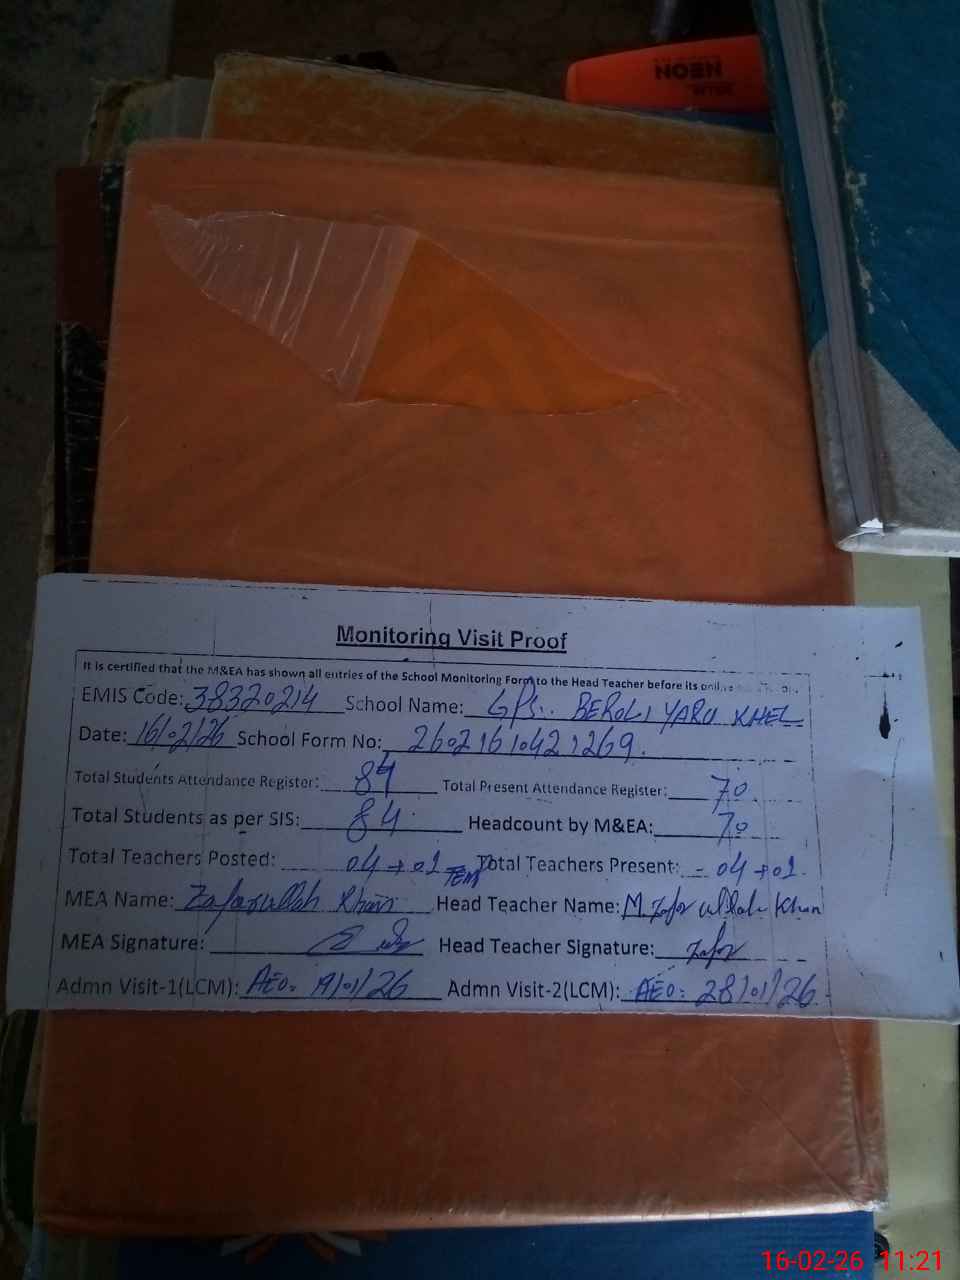 NOEN
Monitoring Visit Proof
It is certified that the M&EA has shown all entries of the School Monitoring Form to the Head Teacher before its
EMIS Code: 38320214 School Name: GPS. BEROLI YARU KHEL
Date: 16/02/26 School Form No: 26021610421269.
Total Students Attendance Register: 84 Total Present Attendance Register: 70
Total Students as per SIS: 84 Headcount by M&EA: 70
Total Teachers Posted: 04+01 Total Teachers Present: 04+01.
MEA Name: Zafarullah Khan Head Teacher Name: M. Zafar ullah Khan
MEA Signature: Head Teacher Signature: Zafar
Admn Visit-1(LCM): AEO: 19/01/26 Admn Visit-2(LCM): AEO: 28/01/26.
16-02-26 11:21